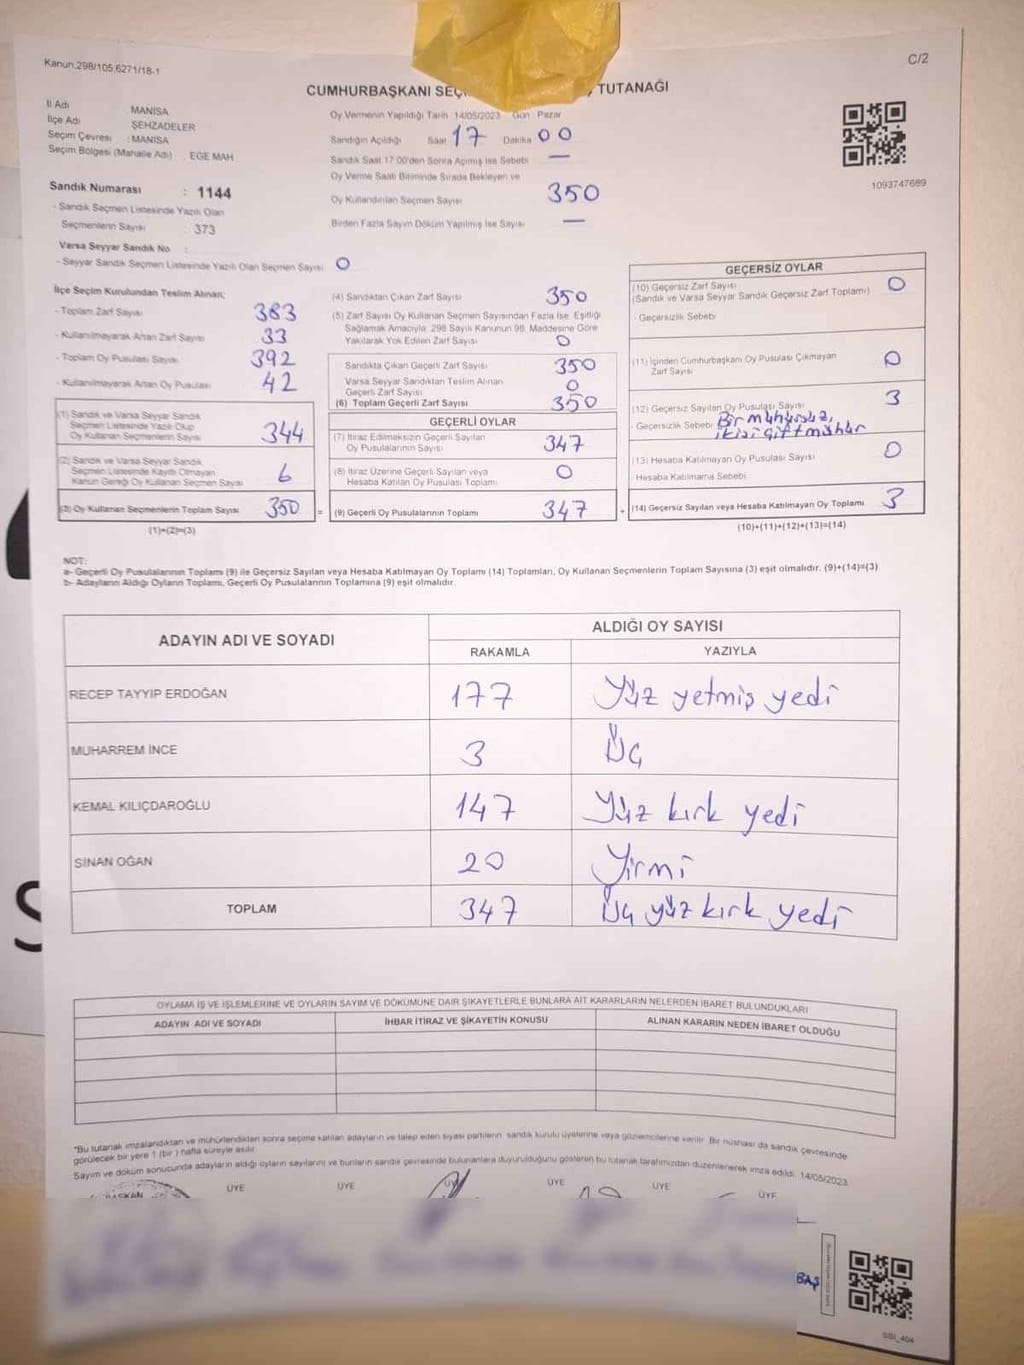 Kanun.298/105,6271/18-1
C/2
CUMHURBAŞKANI SEÇ TUTANAĞI
İl Adı MANİSA
İlçe Adı ŞEHZADELER
Seçim Çevresi : MANİSA
Seçim Bölgesi (Mahalle Adı) . EGE MAH
Sandık Numarası : 1144
- Sandık Seçmen Listesinde Yazılı Olan
Seçmenlerin Sayısı : 373
Varsa Seyyar Sandık No :
- Seyyar Sandık Seçmen Listesinde Yazılı Olan Seçmen Sayısı 0
Oy Vermenin Yapıldığı Tarih 14/05/2023 Gün Pazar
Sandığın Açıldığı Saat 17 Dakika 00
Sandık Saat 17.00'den Sonra Açılmış İse Sebebi —
Oy Verme Saati Bitiminde Sırada Bekleyen ve
Oy Kullandırılan Seçmen Sayısı 350
Birden Fazla Sayım Döküm Yapılmış İse Sayısı —
1093747689
İlçe Seçim Kurulundan Teslim Alınan;
- Toplam Zarf Sayısı 383
- Kullanılmayarak Artan Zarf Sayısı 33
- Toplam Oy Pusulası Sayısı 392
- Kullanılmayarak Artan Oy Pusulası 42
(1) Sandık ve Varsa Seyyar Sandık
Seçmen Listesinde Yazılı Olup
Oy Kullanan Seçmenlerin Sayısı 344
(2) Sandık ve Varsa Seyyar Sandık
Seçmen Listesinde Kayıtlı Olmayan
Kanun Gereği Oy Kullanan Seçmen Sayısı 6
(3) Oy Kullanan Seçmenlerin Toplam Sayısı 350 =
(1)+(2)=(3)
(4) Sandıktan Çıkan Zarf Sayısı 350
(5) Zarf Sayısı Oy Kullanan Seçmen Sayısından Fazla İse, Eşitliği
Sağlamak Amacıyla, 298 Sayılı Kanunun 98. Maddesine Göre
Yakılarak Yok Edilen Zarf Sayısı 0
Sandıkta Çıkan Geçerli Zarf Sayısı 350
Varsa Seyyar Sandıktan Teslim Alınan
Geçerli Zarf Sayısı 0
(6) Toplam Geçerli Zarf Sayısı 350
GEÇERLİ OYLAR
(7) İtiraz Edilmeksizin Geçerli Sayılan
Oy Pusulalarının Sayısı 347
(8) İtiraz Üzerine Geçerli Sayılan veya
Hesaba Katılan Oy Pusulası Toplamı 0
(9) Geçerli Oy Pusulalarının Toplamı 347 +
GEÇERSİZ OYLAR
(10) Geçersiz Zarf Sayısı 0
(Sandık ve Varsa Seyyar Sandık Geçersiz Zarf Toplamı)
- Geçersizlik Sebebi
(11) İçinden Cumhurbaşkanı Oy Pusulası Çıkmayan
Zarf Sayısı 0
(12) Geçersiz Sayılan Oy Pusulası Sayısı 3
- Geçersizlik Sebebi Bir mühürsüz,
ikisi çift mühür
(13) Hesaba Katılmayan Oy Pusulası Sayısı 0
- Hesaba Katılmama Sebebi
(14) Geçersiz Sayılan veya Hesaba Katılmayan Oy Toplamı 3
(10)+(11)+(12)+(13)=(14)
NOT:
a- Geçerli Oy Pusulalarının Toplamı (9) ile Geçersiz Sayılan veya Hesaba Katılmayan Oy Toplamı (14) Toplamları, Oy Kullanan Seçmenlerin Toplam Sayısına (3) eşit olmalıdır. (9)+(14)=(3)
b- Adayların Aldığı Oyların Toplamı, Geçerli Oy Pusulalarının Toplamına (9) eşit olmalıdır.
ADAYIN ADI VE SOYADI ALDIĞI OY SAYISI
RAKAMLA YAZIYLA
RECEP TAYYIP ERDOĞAN 177 Yüz yetmiş yedi
MUHARREM İNCE 3 Üç
KEMAL KILIÇDAROĞLU 147 Yüz kırk yedi
SİNAN OĞAN 20 Yirmi
TOPLAM 347 Üç yüz kırk yedi
OYLAMA İŞ VE İŞLEMLERİNE VE OYLARIN SAYIM VE DÖKÜMÜNE DAİR ŞİKAYETLERLE BUNLARA AİT KARARLARIN NELERDEN İBARET BULUNDUKLARI
ADAYIN ADI VE SOYADI İHBAR İTİRAZ VE ŞİKAYETİN KONUSU ALINAN KARARIN NEDEN İBARET OLDUĞU
"Bu tutanak imzalandıktan ve mühürlendikten sonra seçime katılan adayların ve talep eden siyasi partilerin sandık kurulu üyelerine veya gözlemcilerine verilir. Bir nüshası da sandık çevresinde
görülecek bir yere 1 (bir) hafta süreyle asılır.
Sayım ve döküm sonucunda adayların aldığı oyların sayılarını ve bunların sandık çevresinde bulunanlara duyurulduğunu gösteren bu tutanak tarafımızdan düzenlenerek imza edildi. 14/05/2023
BAŞKAN ÜYE ÜYE ÜYE ÜYE ÜYE ÜYE
BAŞ
SGI_404